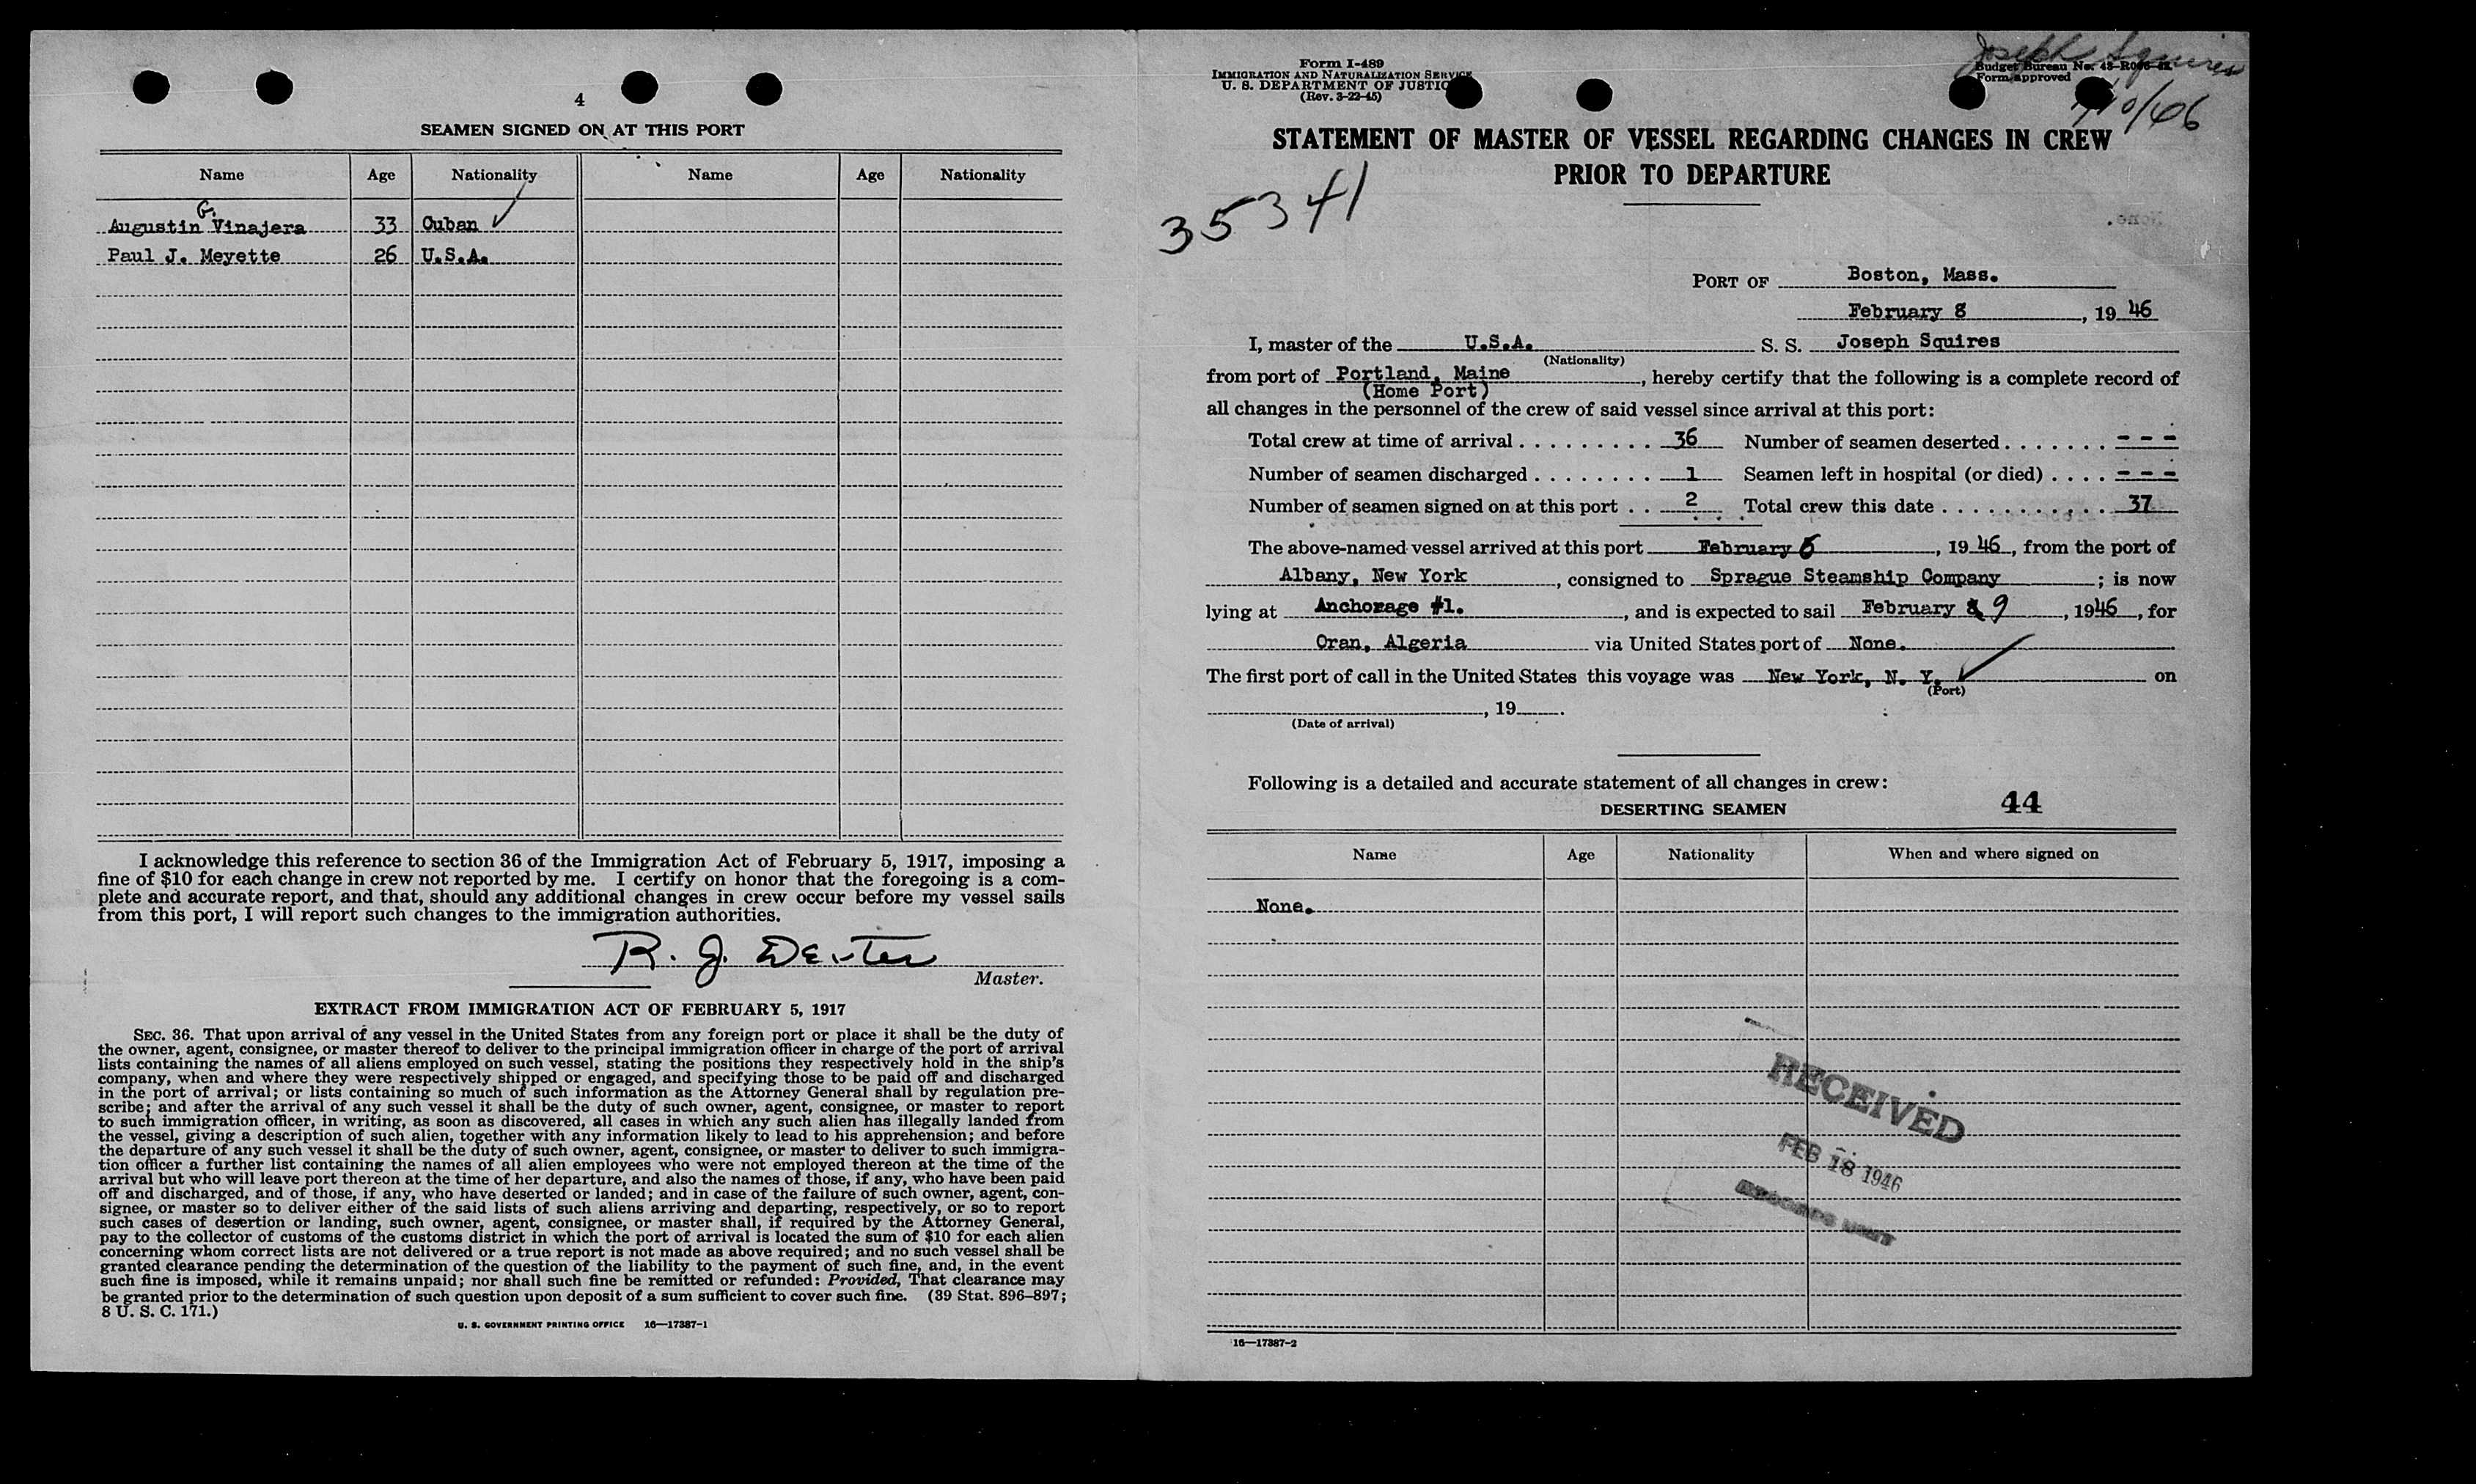 4
SEAMEN SIGNED ON AT THIS PORT
Name Age Nationality Name Age Nationality
G.
Augustin Vinajera 33 Cuban
Paul J. Meyette 26 U.S.A.
I acknowledge this reference to section 36 of the Immigration Act of February 5, 1917, imposing a
fine of $10 for each change in crew not reported by me. I certify on honor that the foregoing is a com-
plete and accurate report, and that, should any additional changes in crew occur before my vessel sails
from this port, I will report such changes to the immigration authorities.
R. J. Dexter
Master.
EXTRACT FROM IMMIGRATION ACT OF FEBRUARY 5, 1917
SEC. 36. That upon arrival of any vessel in the United States from any foreign port or place it shall be the duty of
the owner, agent, consignee, or master thereof to deliver to the principal immigration officer in charge of the port of arrival
lists containing the names of all aliens employed on such vessel, stating the positions they respectively hold in the ship's
company, when and where they were respectively shipped or engaged, and specifying those to be paid off and discharged
in the port of arrival; or lists containing so much of such information as the Attorney General shall by regulation pre-
scribe; and after the arrival of any such vessel it shall be the duty of such owner, agent, consignee, or master to report
to such immigration officer, in writing, as soon as discovered, all cases in which any such alien has illegally landed from
the vessel, giving a description of such alien, together with any information likely to lead to his apprehension; and before
the departure of any such vessel it shall be the duty of such owner, agent, consignee, or master to deliver to such immigra-
tion officer a further list containing the names of all alien employees who were not employed thereon at the time of the
arrival but who will leave port thereon at the time of her departure, and also the names of those, if any, who have been paid
off and discharged, and of those, if any, who have deserted or landed; and in case of the failure of such owner, agent, con-
signee, or master so to deliver either of the said lists of such aliens arriving and departing, respectively, or so to report
such cases of desertion or landing, such owner, agent, consignee, or master shall, if required by the Attorney General,
pay to the collector of customs of the customs district in which the port of arrival is located the sum of $10 for each alien
concerning whom correct lists are not delivered or a true report is not made as above required; and no such vessel shall be
granted clearance pending the determination of the question of the liability to the payment of such fine, and, in the event
such fine is imposed, while it remains unpaid; nor shall such fine be remitted or refunded: Provided, That clearance may
be granted prior to the determination of such question upon deposit of a sum sufficient to cover such fine. (39 Stat. 896–897;
8 U. S. C. 171.)
U. S. GOVERNMENT PRINTING OFFICE 16—17387-1
Form I-489
IMMIGRATION AND NATURALIZATION SERVICE
U. S. DEPARTMENT OF JUSTIC
(Rev. 3-22-45)
Joseph Squires
Budget Bureau No. 43-R
Form approved
STATEMENT OF MASTER OF VESSEL REGARDING CHANGES IN CREW
PRIOR TO DEPARTURE
35341
PORT OF Boston, Mass.
February 8, 1946
I, master of the U.S.A. S. S. Joseph Squires
(Nationality)
from port of Portland, Maine, hereby certify that the following is a complete record of
(Home Port)
all changes in the personnel of the crew of said vessel since arrival at this port:
Total crew at time of arrival . . . . . . . . . . 36 Number of seamen deserted . . . . . . . - - -
Number of seamen discharged . . . . . . . . 1 Seamen left in hospital (or died) . . . . - - -
Number of seamen signed on at this port . . 2 Total crew this date . . . . . . . . . . . 37
The above-named vessel arrived at this port February 5, 1946, from the port of
Albany, New York, consigned to Sprague Steamship Company; is now
lying at Anchorage #1., and is expected to sail February 9, 1946, for
Oran, Algeria via United States port of None.
The first port of call in the United States this voyage was New York, N. Y. on
(Port)
, 19 .
(Date of arrival)
Following is a detailed and accurate statement of all changes in crew:
DESERTING SEAMEN 44
Name Age Nationality When and where signed on
None.
RECEIVED
FEB 18 1946
RECORDS UNIT
16—17387-2